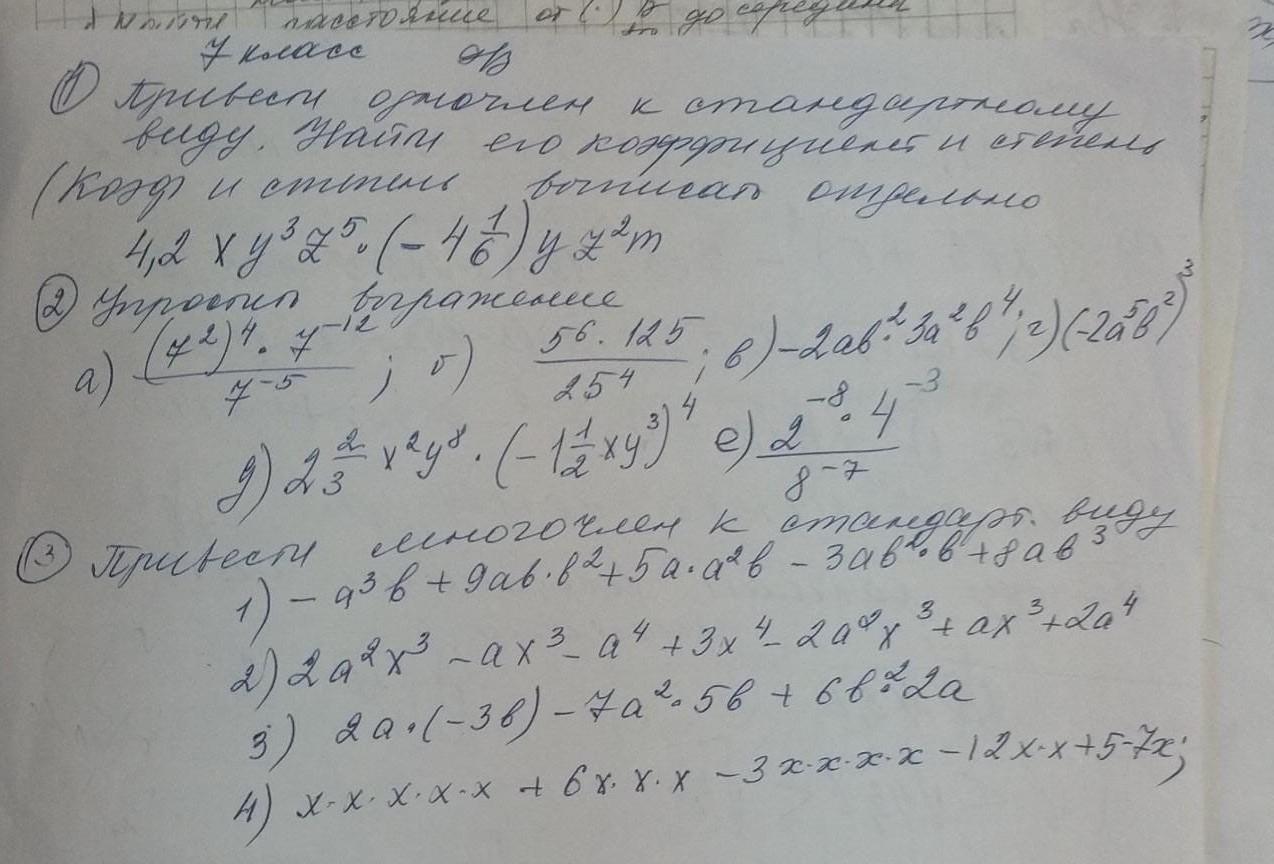 найти расстояние от (·) B до середины
7 класс
① Привести одночлен к стандартному
виду. Найти его коэффициент и степень
(Коэф и степень выписать отдельно
4,2 x y³ z⁵ · (- 4 1/6) y z² m
② Упростить выражение
а) (7²)⁴ · 7⁻¹² / 7⁻⁵ ; б) 5⁶ · 125 / 25⁴ ; в) -2ab² · 3a²b⁴ ; г) (-2a⁵b²)³
д) 2 2/3 x²y⁸ · (-1 1/2 xy³)⁴ е) 2⁻⁸ · 4⁻³ / 8⁻⁷
③ Привести многочлен к стандарт. виду
1) - a³b + 9ab · b² + 5a · a²b - 3ab² · b + 8ab³
2) 2a²x³ - ax³ - a⁴ + 3x⁴ - 2a²x³ + ax³ + 2a⁴
3) 2a · (-3b) - 7a² · 5b + 6b² · 2a
4) x · x · x · x · x + 6x · x · x - 3x · x · x · x - 12x · x + 5 - 7x;